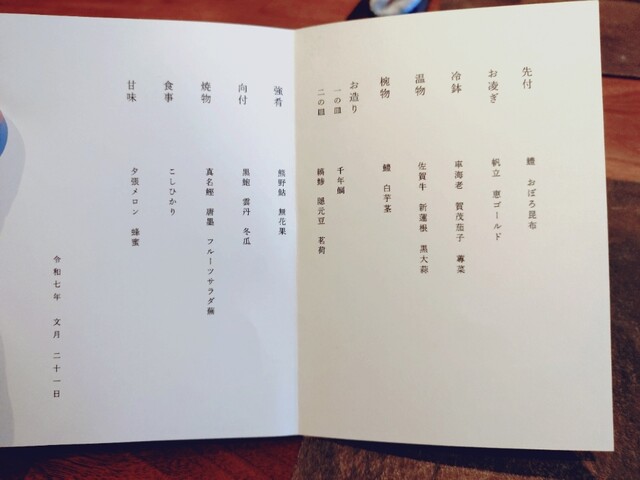 先付 おぼろ昆布
お凌ぎ 帆立 恵ゴールド
冷鉢 車海老 賀茂茄子 蓴菜
温物 佐賀牛 新蓮根 黒大蒜
椀物 鱧 白芋茎
お造り
一の皿 千年鯛
二の皿 縞鯵 隠元豆 茗荷
強肴 熊野鮎 無花果
向付 黒鮑 雲丹 冬瓜
焼物 真名鰹 唐墨 フルーツサラダ蕪
食事 こしひかり
甘味 夕張メロン 蜂蜜
令和七年 文月 二十一日